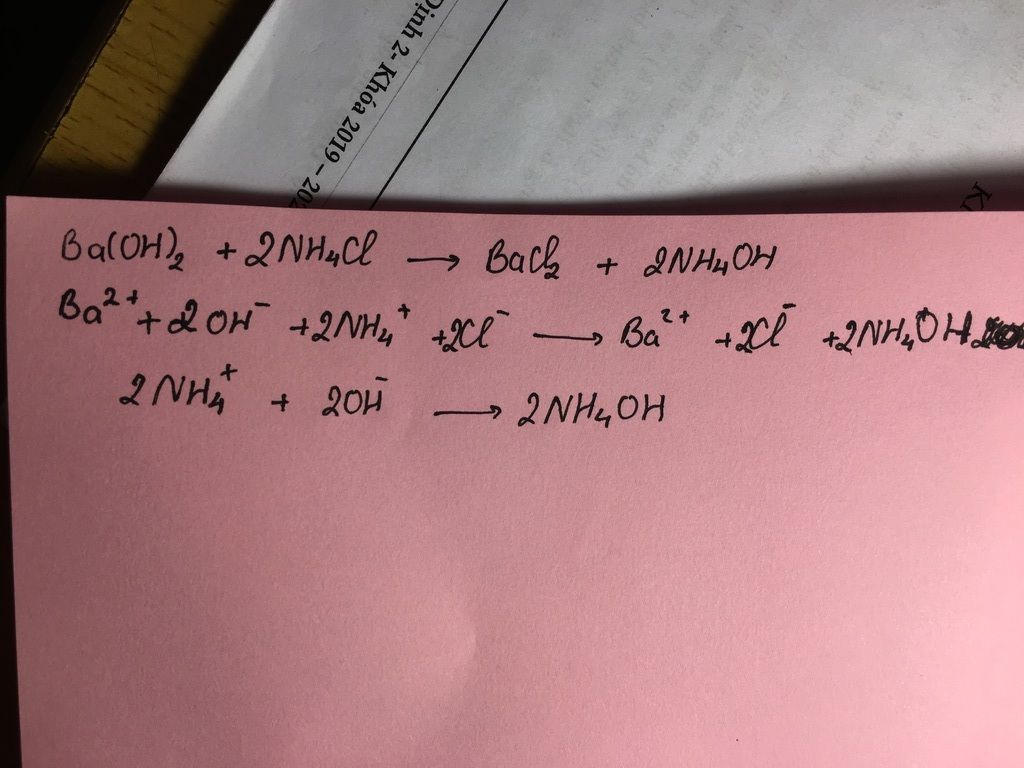 Định 2- Khóa 2019 – 202
Ba(OH)₂ + 2NH₄Cl → BaCl₂ + 2NH₄OH
Ba²⁺ + 2OH⁻ + 2NH₄⁺ + 2Cl⁻ → Ba²⁺ + 2Cl⁻ + 2NH₄OH
2NH₄⁺ + 2OH⁻ → 2NH₄OH